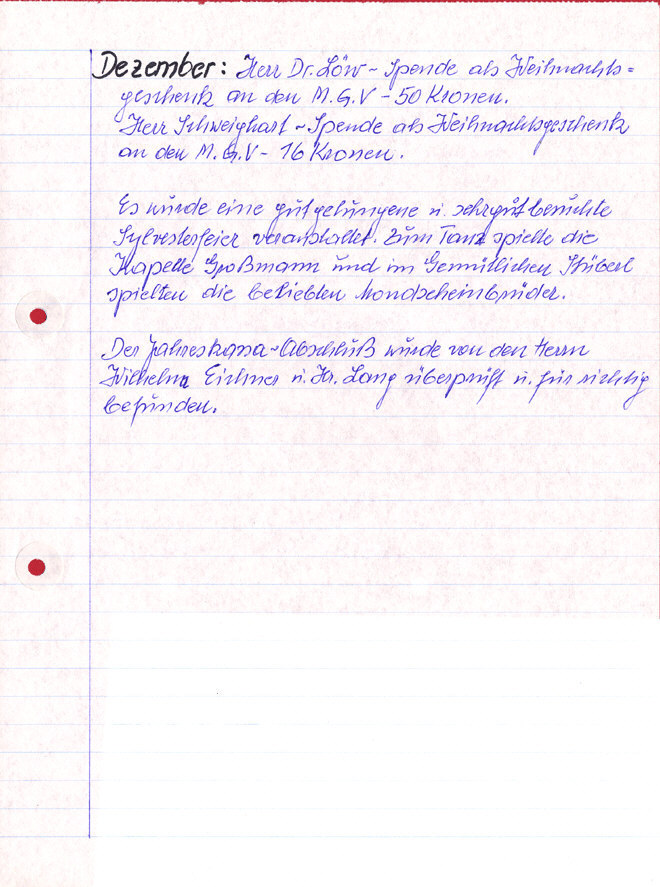 Dezember: Herr Dr. Löw - Spende als Weihnachts=
geschenk an den M.G.V - 50 Kronen.
Herr Schweighart - Spende als Weihnachtsgeschenk
an den M.G.V - 16 Kronen.
Es wurde eine gut gelungene u. sehr gut besuchte
Sylvesterfeier veranstaltet. Zum Tanz spielte die
Kapelle Großmann und im Gemütlichen Stüberl
spielten die beliebten Mondscheinbrüder.
Der Jahreskassa-Abschluß wurde von den Herrn
Wilhelm Eichner u. Lang überprüft u. für richtig
befunden.